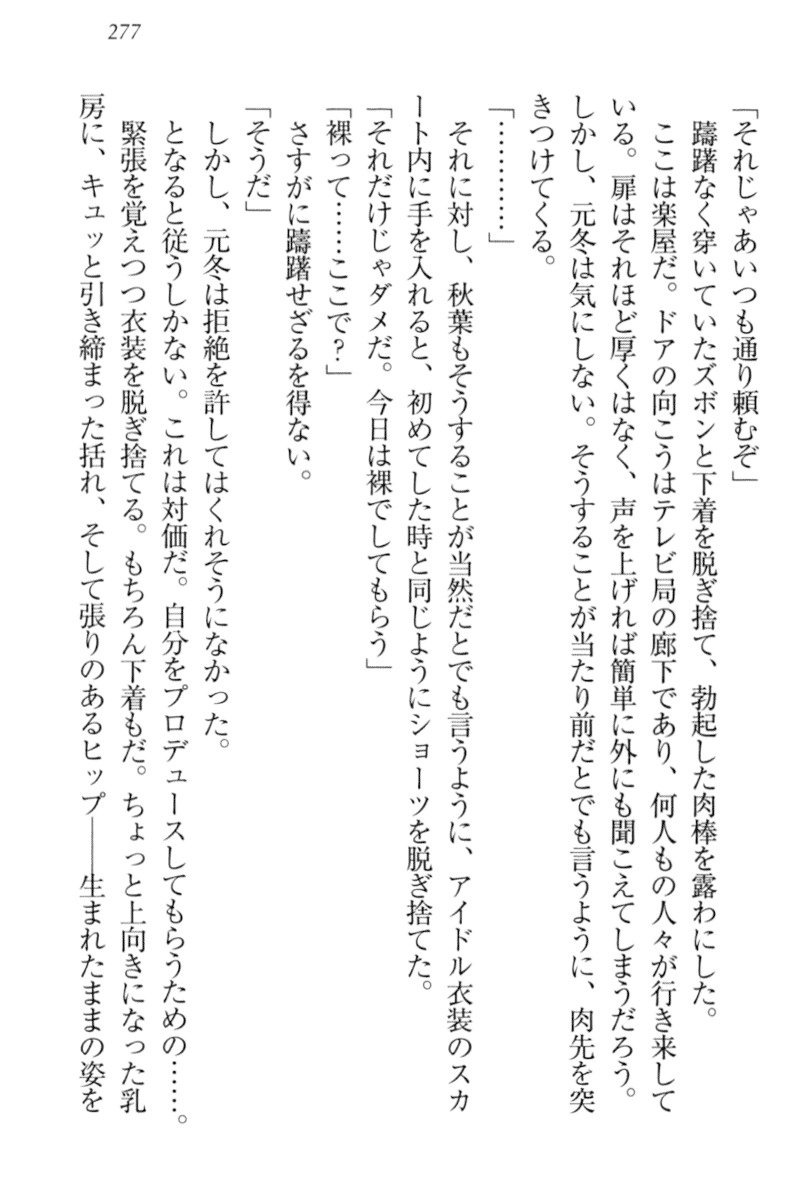 277
「それじゃあいつも通り頼むぞ」
躊躇なく穿いていたズボンと下着を脱ぎ捨て、勃起した肉棒を露わにした。
ここは楽屋だ。ドアの向こうはテレビ局の廊下であり、何人もの人々が行き来して
いる。扉はそれほど厚くはなく、声を上げれば簡単に外にも聞こえてしまうだろう。
しかし、元冬は気にしない。そうすることが当たり前だとでも言うように、肉先を突
きつけてくる。
「…………」
それに対し、秋葉もそうすることが当然だとでも言うように、アイドル衣装のスカ
ート内に手を入れると、初めてした時と同じようにショーツを脱ぎ捨てた。
「それだけじゃダメだ。今日は裸でしてもらう」
「裸って……ここで？」
さすがに躊躇せざるを得ない。
「そうだ」
しかし、元冬は拒絶を許してはくれそうになかった。
となると従うしかない。これは対価だ。自分をプロデュースしてもらうための……。
緊張を覚えつつ衣装を脱ぎ捨てる。もちろん下着もだ。ちょっと上向きになった乳
房に、キュッと引き締まった括れ、そして張りのあるヒップ――生まれたままの姿を